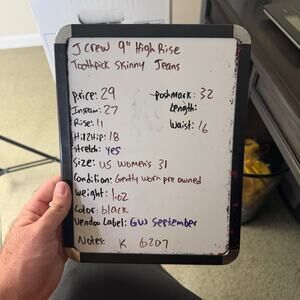 J crew 9" High Rise
Toothpick Skinny Jeans
Price: 29
postmark: 32
Inseam: 27
Length:
Rise: 11
Waist: 16
Hip2Hip: 18
Stretch: yes
Size: US Women's 31
Condition: Gently worn pre owned
Weight: 1 oz
Color: black
Vendoo Label: GW September
Notes: K 6207